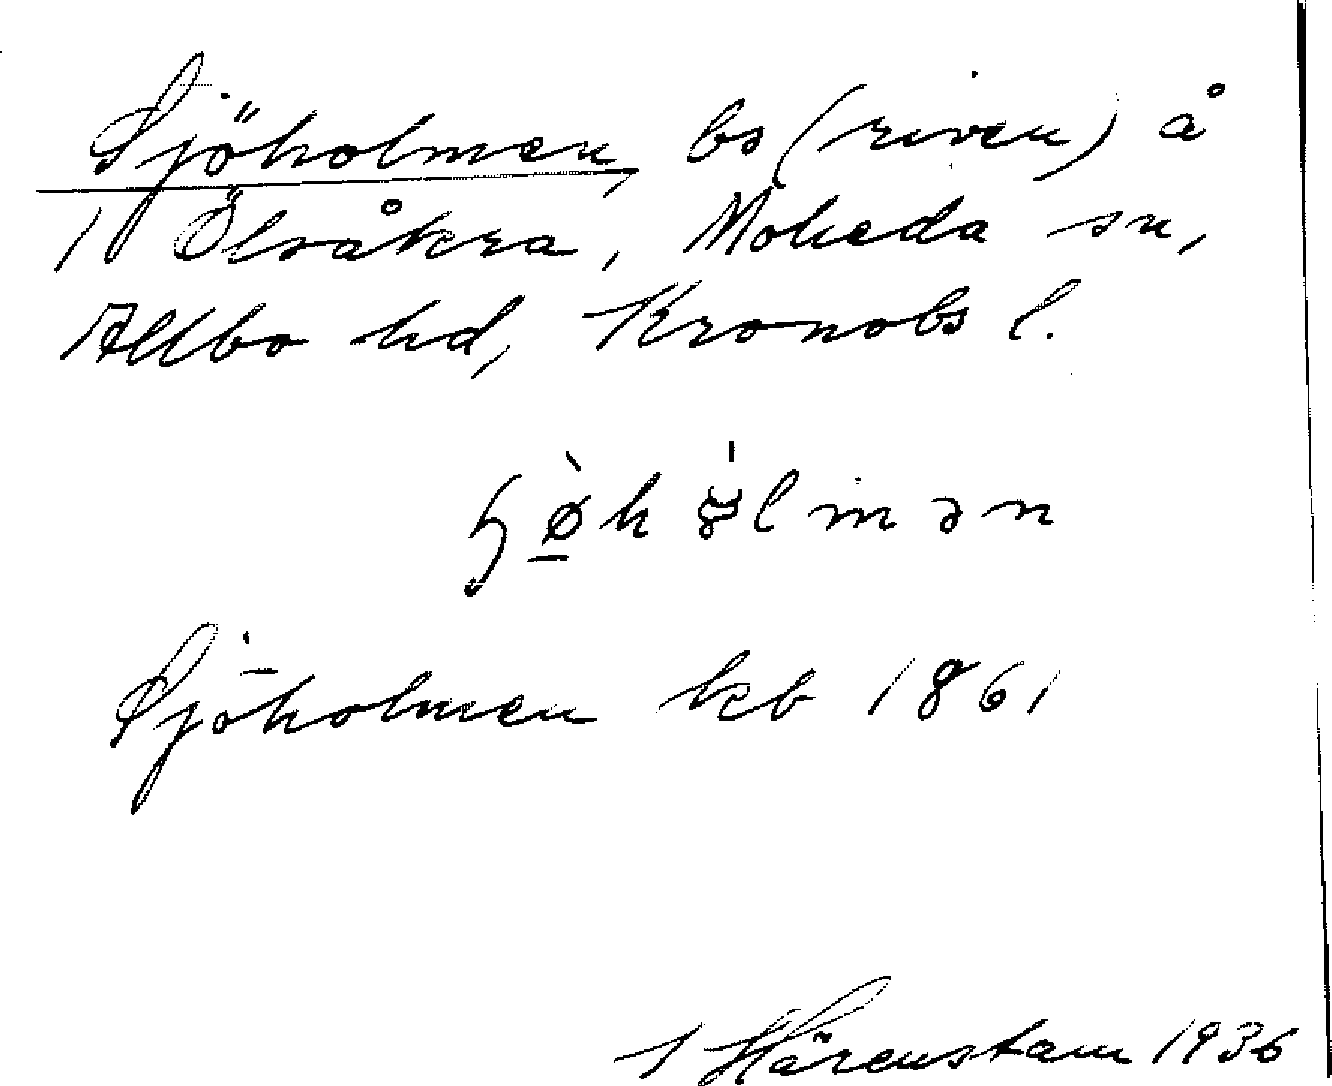 Sjöholmen, bs (riven) å
1 Ölsåkra, Moheda sn,
Allbo hd, Kronobs l.
Sjöholmen kb 1861
Härenstam 1936